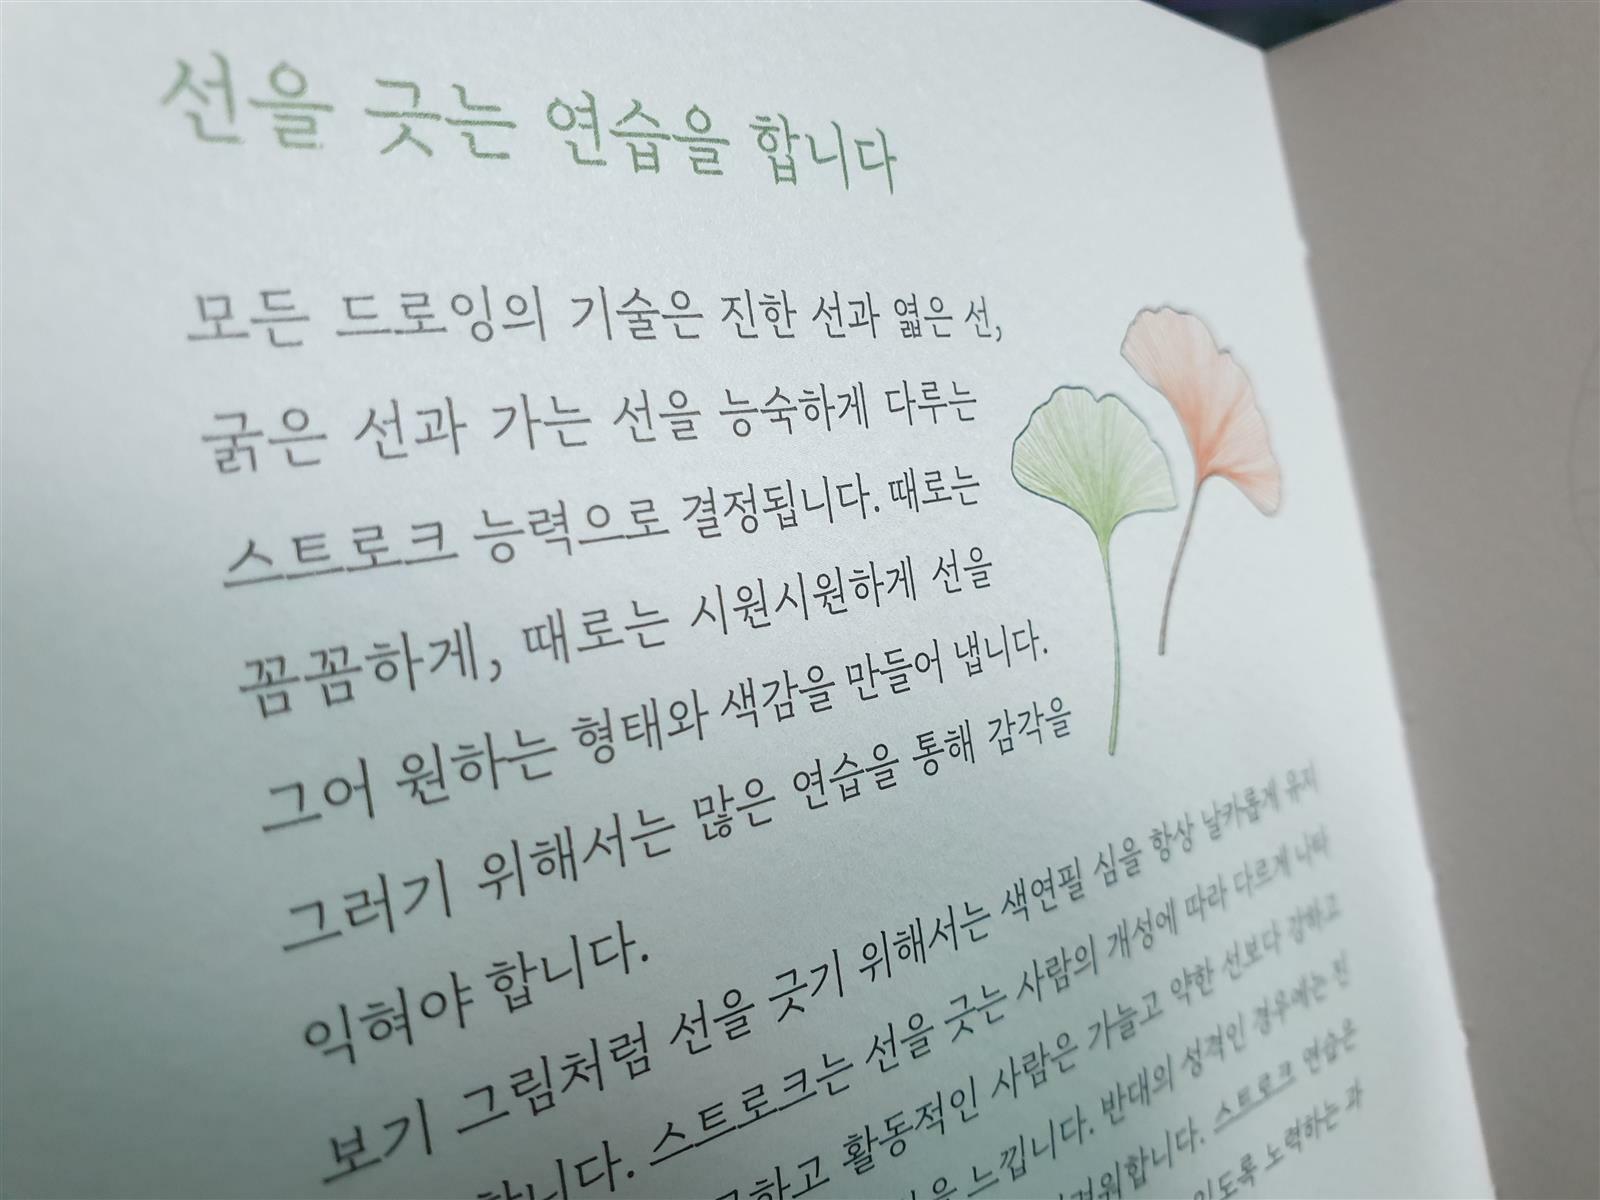 선을 긋는 연습을 합니다
모든 드로잉의 기술은 진한 선과 엷은 선,
굵은 선과 가는 선을 능숙하게 다루는
스트로크 능력으로 결정됩니다. 때로는
꼼꼼하게, 때로는 시원시원하게 선을
그어 원하는 형태와 색감을 만들어 냅니다.
그러기 위해서는 많은 연습을 통해 감각을
익혀야 합니다.
보기 그림처럼 선을 긋기 위해서는 색연필 심을 항상 날카롭게 유지
합니다. 스트로크는 선을 긋는 사람의 개성에 따라 다르게 나타
하고 활동적인 사람은 가늘고 약한 선보다 강하고
을 느낍니다. 반대의 성격인 경우에는 진
합니다. 스트로크 연습은
있도록 노력하는 과